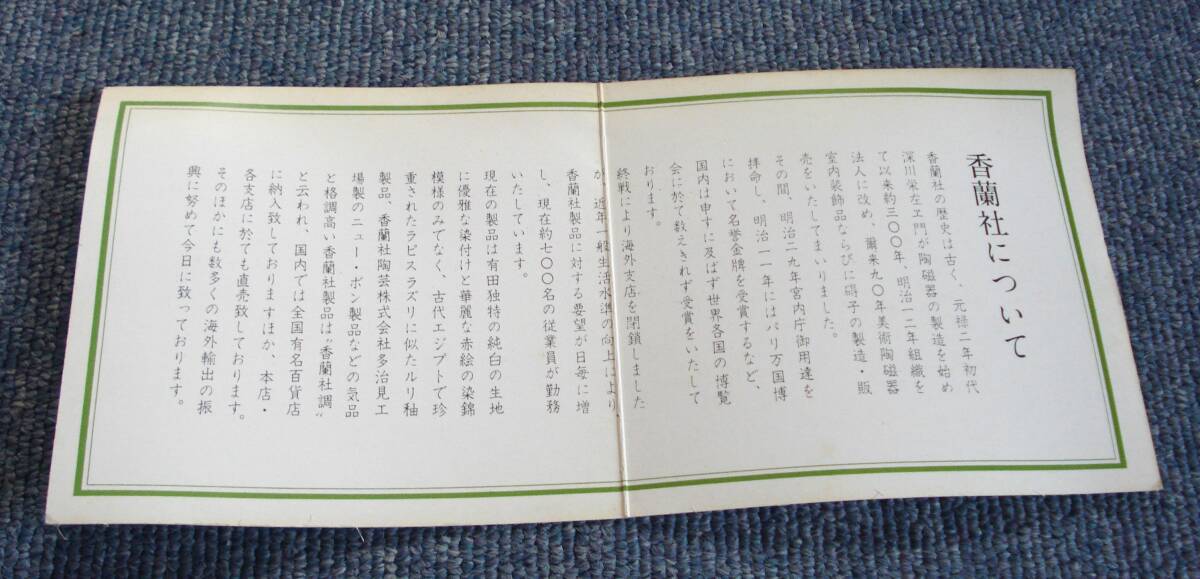 香蘭社について
香蘭社の歴史は古く、元禄二年初代
深川栄左ヱ門が陶磁器の製造を始め
て以来約三〇〇年、明治一二年組織を
法人に改め、爾来九〇年美術陶磁器
室内装飾品ならびに碍子の製造・販
売をいたしてまいりました。
その間、明治二九年宮内庁御用達を
拝命し、明治一一年にはパリ万国博
において名誉金牌を受賞するなど、
国内は申すに及ばず世界各国の博覧
会に於て数えきれず受賞をいたして
おります。
終戦により海外支店を閉鎖しました
が、近年一般生活水準の向上により
香蘭社製品に対する要望が日毎に増
し、現在約七〇〇名の従業員が勤務
いたしています。
現在の製品は有田独特の純白の生地
に優雅な染付けと華麗な赤絵の染錦
模様のみでなく、古代エジプトで珍
重されたラピスラズリに似たルリ釉
製品、香蘭社陶芸株式会社多治見工
場製のニュー・ボン製品などの気品
と格調高い香蘭社製品は〝香蘭社調〟
と云われ、国内では全国有名百貨店
に納入致しておりますほか、本店・
各支店に於ても直売致しております。
そのほかにも数多くの海外輸出の振
興に努めて今日に致っております。